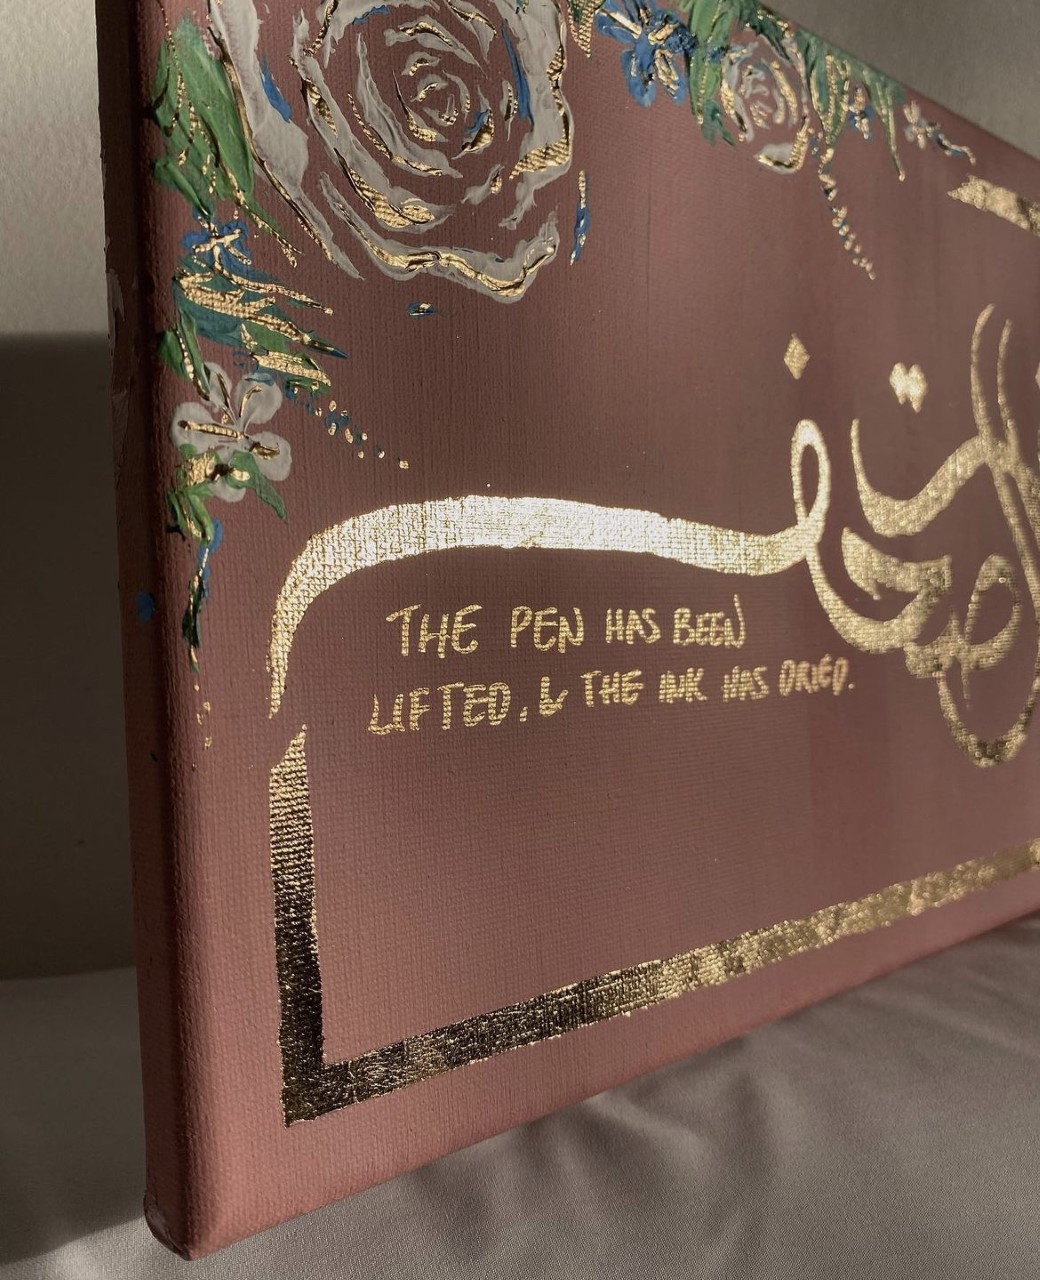 الصحف
THE PEN HAS BEEN
LIFTED, & THE INK HAS DRIED.